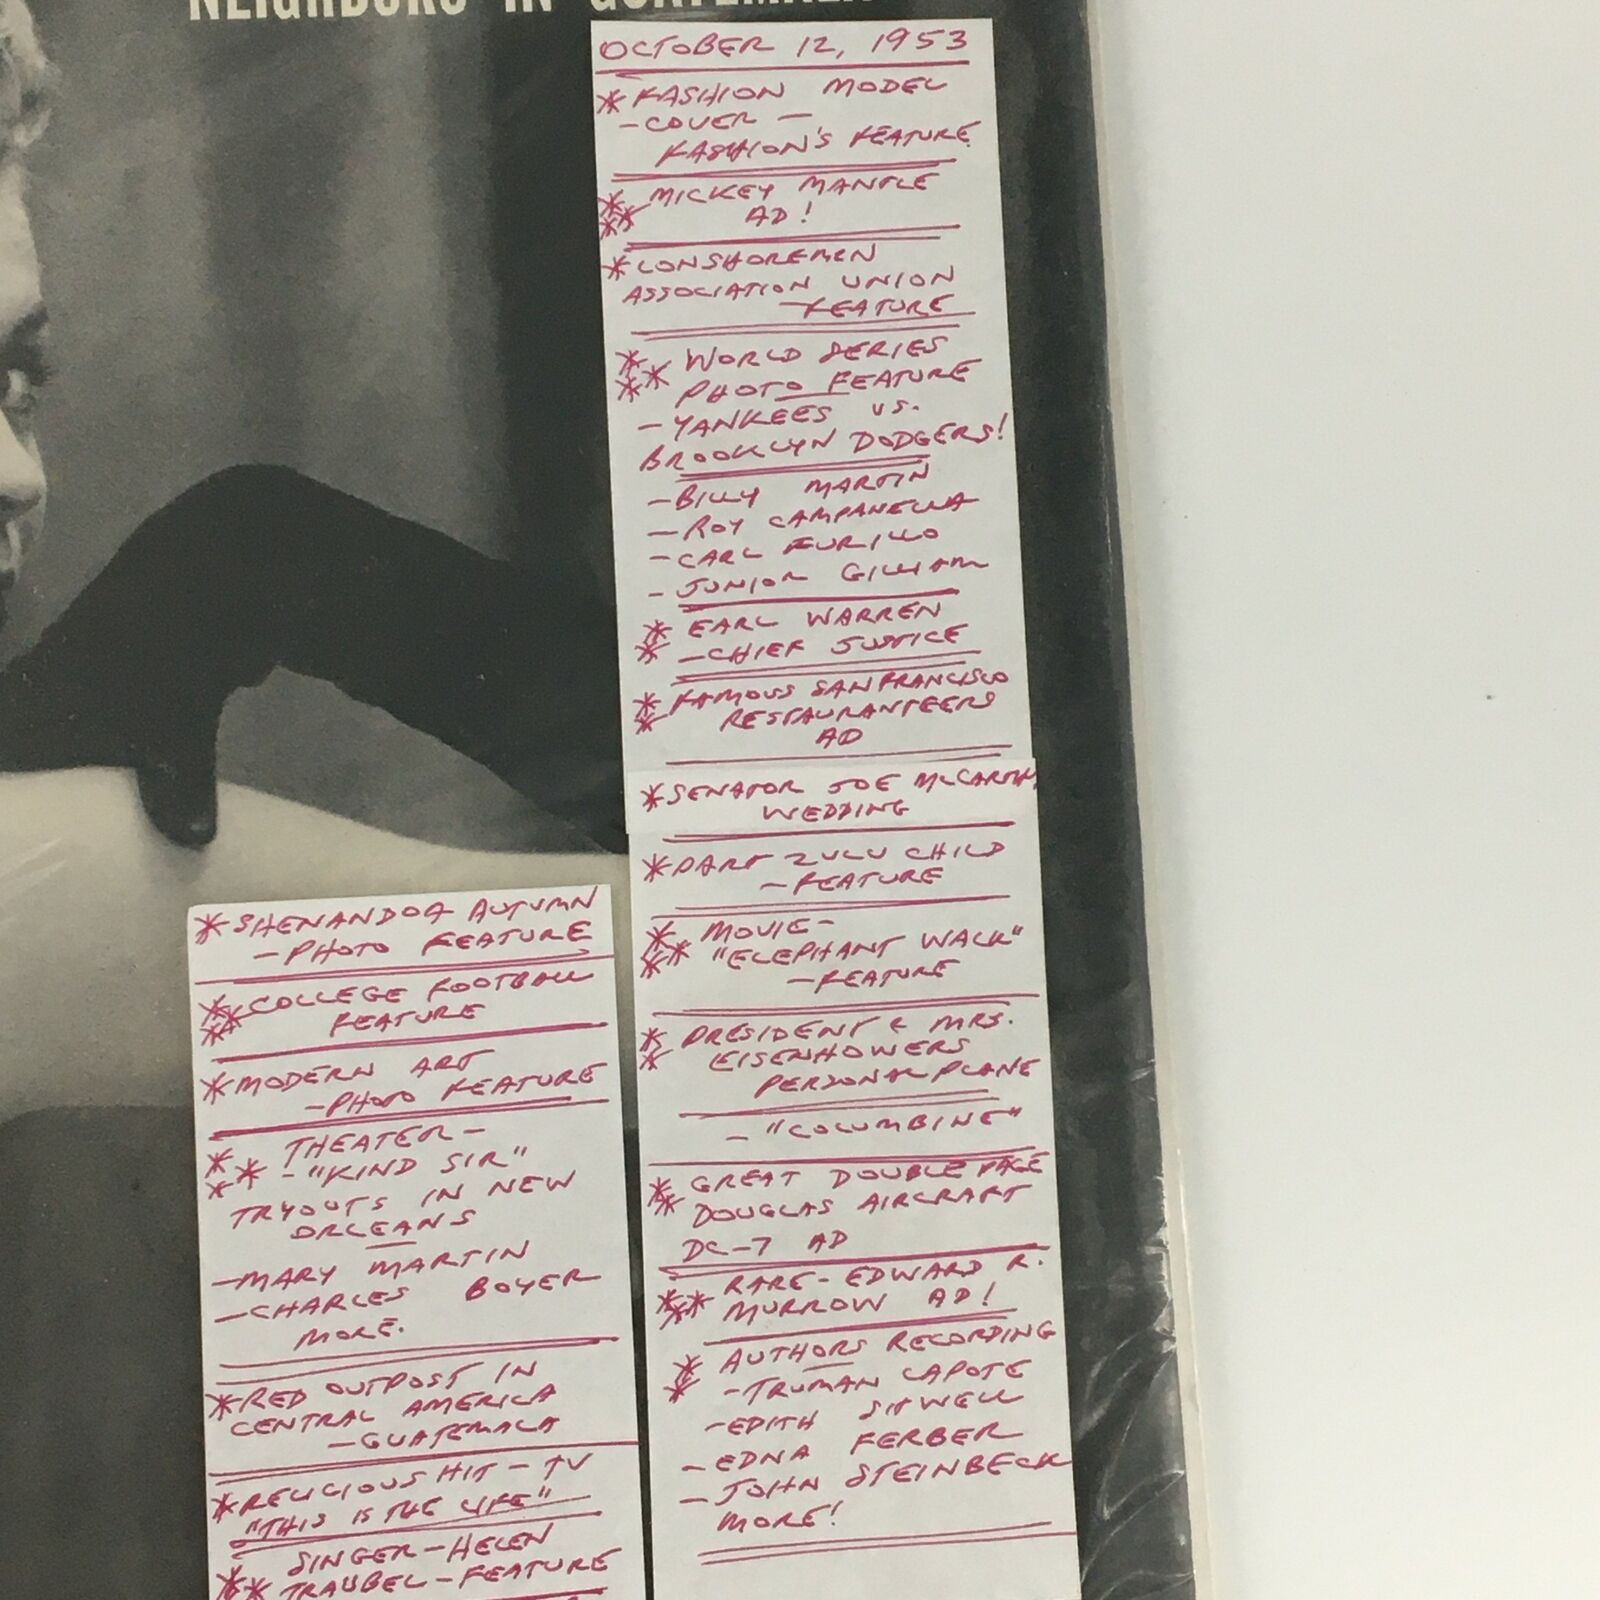 NEIGHBORS IN GUATEMALA
OCTOBER 12, 1953
* FASHION MODEL
- COVER -
FASHION'S FEATURE
*** MICKEY MANTLE
AD!
* LONSHOREMEN
ASSOCIATION UNION
- FEATURE
*** WORLD SERIES
PHOTO FEATURE
- YANKEES VS.
BROOKLYN DODGERS!
- BILLY MARTIN
- ROY CAMPANELLA
- CARL FURILLO
- JUNIOR GILLIAM
** EARL WARREN
- CHIEF JUSTICE
** FAMOUS SAN FRANCISCO
RESTAURANTEERS
AD
* SENATOR JOE McCARTHY
WEDDING
* PART ZULU CHILD
- FEATURE
*** MOVIE -
"ELEPHANT WALK"
- FEATURE
** PRESIDENT & MRS.
EISENHOWERS
PERSONAL PLANE
- "COLUMBINE"
** GREAT DOUBLE PAGE
DOUGLAS AIRCRAFT
DC-7 AD
**** RARE - EDWARD R.
MURROW AD!
** AUTHORS RECORDING
- TRUMAN CAPOTE
- EDITH SITWELL
- EDNA FERBER
- JOHN STEINBECK
MORE!
* SHENANDOA AUTUMN
- PHOTO FEATURE
*** COLLEGE FOOTBALL
FEATURE
* MODERN ART
- PHOTO FEATURE
*** THEATER -
- "KIND SIR"
TRYOUTS IN NEW
ORLEANS
- MARY MARTIN
- CHARLES BOYER
MORE.
* RED OUTPOST IN
CENTRAL AMERICA
- GUATEMALA
* RELIGIOUS HIT - TV
"THIS IS THE LIFE"
*** SINGER - HELEN
TRAUBEL - FEATURE